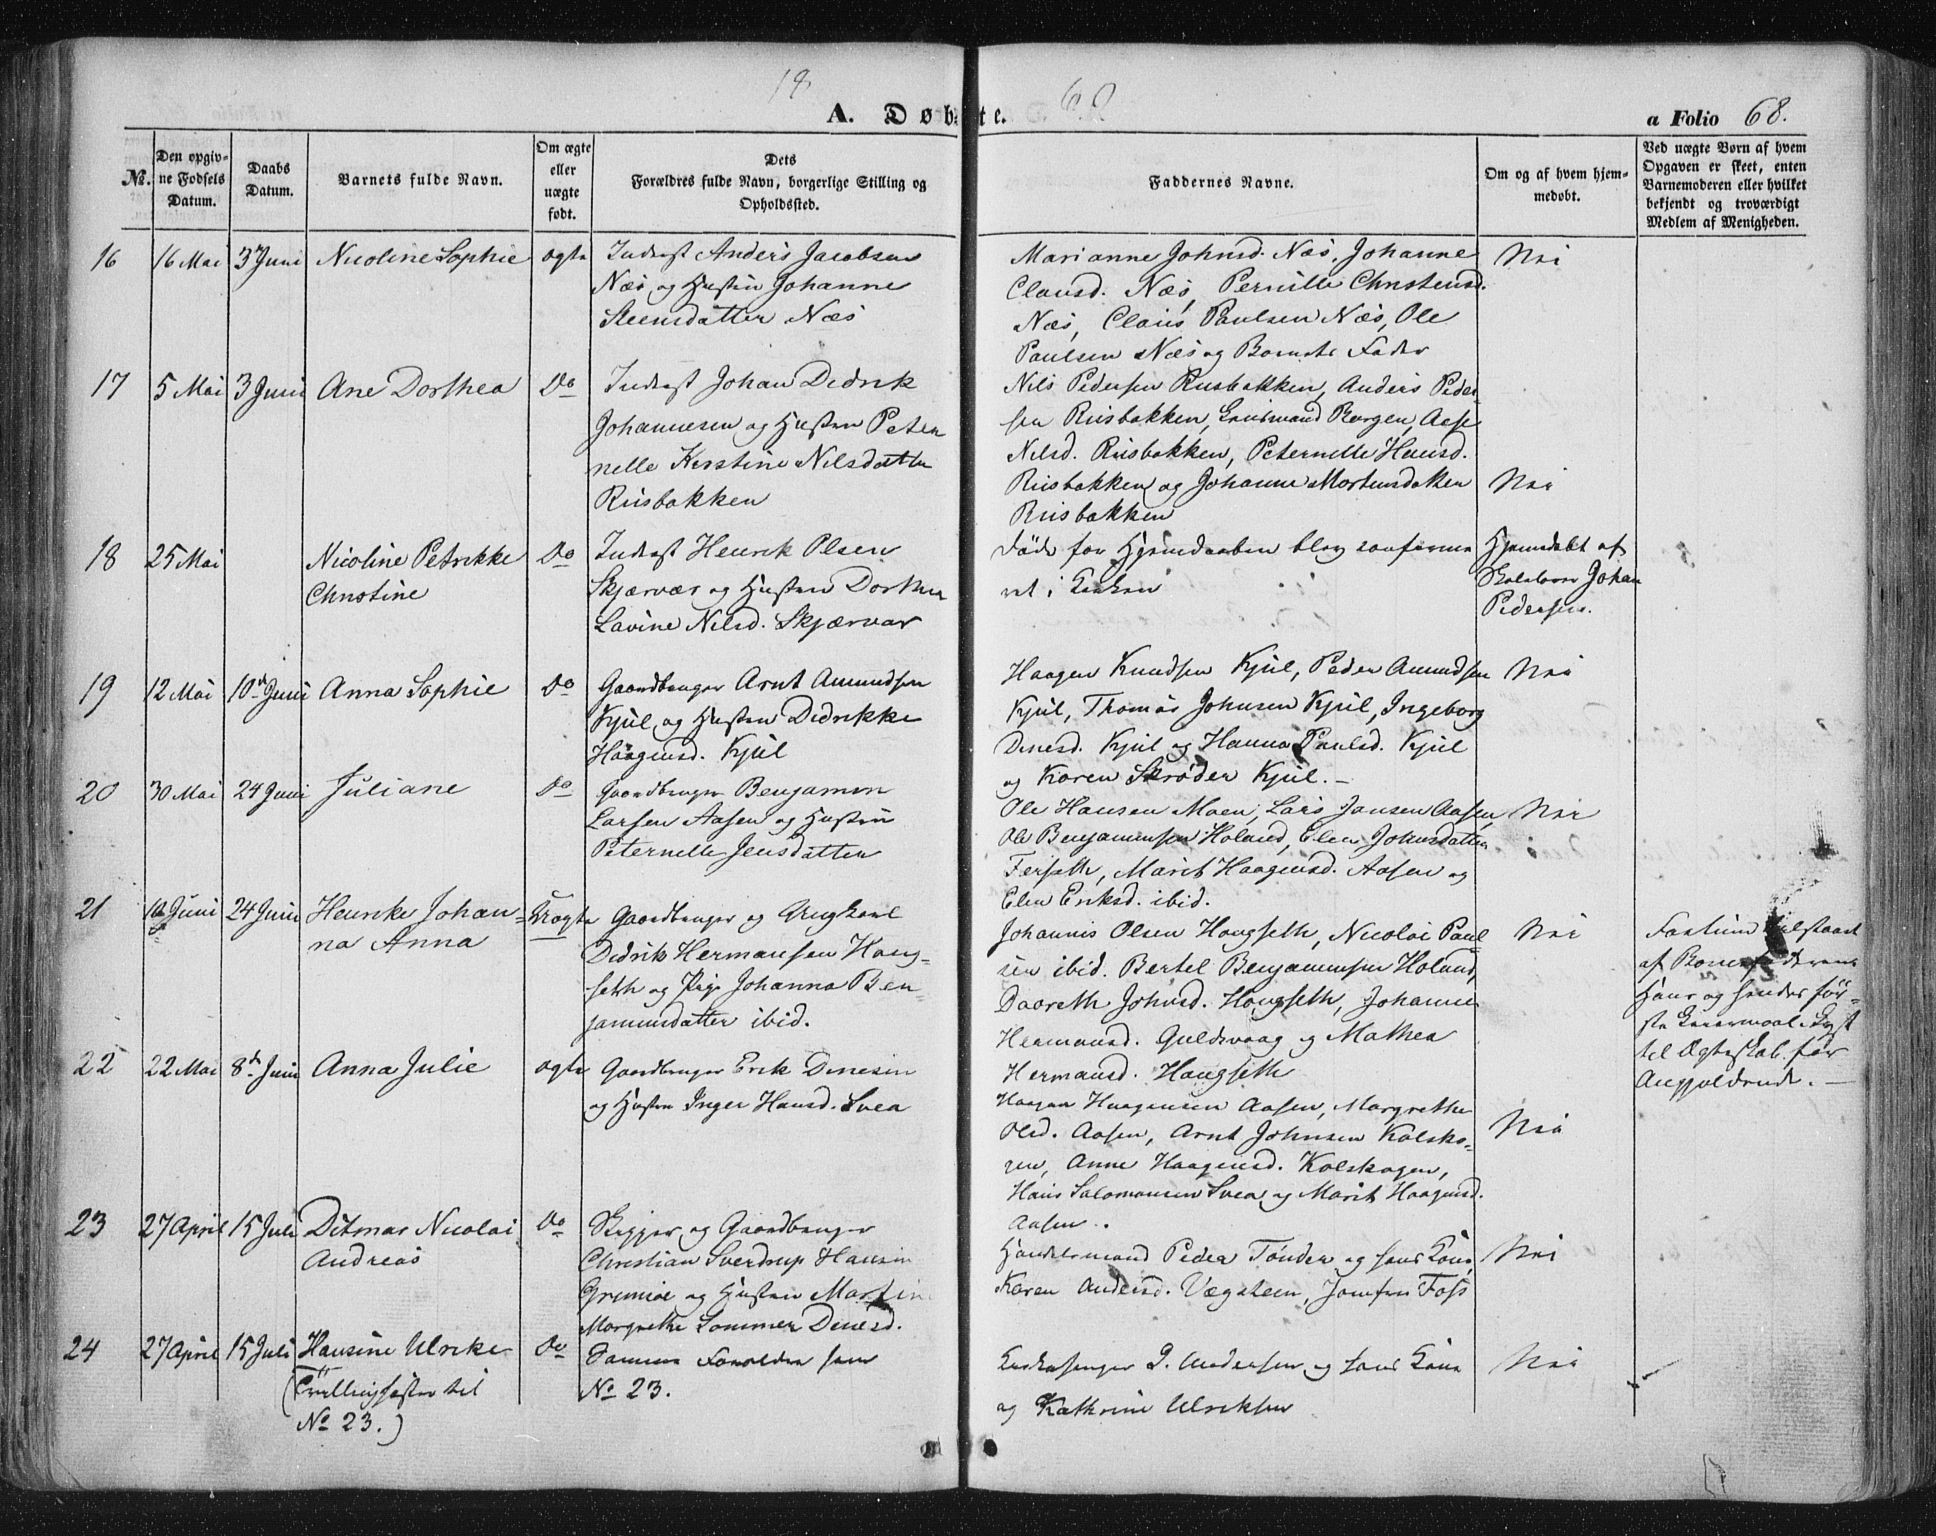 18 60
A. Døbte.
a Folio 68.
No.
Den opgiv-
ne Fødsels
Datum.
Daabs
Datum.
Barnets fulde Navn.
Om ægte
eller
uægte
født.
Dets
Forældres fulde Navn, borgerlige Stilling og
Opholdssted.
Faddernes Navne.
Om og af hvem hjem-
medøbt.
Ved uægte Børn af hvem
Opgaven er skeet, enten
Barnemoderen eller hvilket
bekjendt og troværdigt
Medlem af Menigheden.
16 16 Mai 3 Juni Nicoline Sophie ægte
Inderst Anders Jacobsen
Næs og Hustru Johanne
Steensdatter Næs
Marianne Johnsd. Næs, Johanne
Clausd. Næs, Pernille Christensd.
Næs, Claus Paulsen Næs, Ole
Paulsen Næs og Barnets Fader
Nei
17 5 Mai 3 Juni Ane Dorthea Do
Inderst Johan Didrik
Johannesen og Hustru Peter
nelle Kirstine Nilsdatter
Riisbakken
Nils Pedersen Riisbakken, Anders Peder-
sen Riisbakken, Borgen, Aase
Nilsd. Riisbakken, Peternelle Hansd.
Riisbakken og Johanne Mortensdatter
Riisbakken
Nei
18 25 Mai Nicoline Petrikke
Christine
Do
Inderst Henrik Olsen
Skjærvær og Hustru Dorthea
Lavine Nilsd. Skjærvær
Døde før Hjemdaaben blev confirme
ret i Kirken
Hjemdøbt af
Skolelærer Johan
Pedersen.
19 12 Mai 10de Juni Anna Sophie Do
Gaardbruger Arnt Amundsen
Kjul og Hustru Didrikke
Haagensd. Kjul
Haagen Knudsen Kjul, Peder Amundsen
Kjul, Thomas Johnsen Kjul, Ingeborg
Dinesd. Kjul og Hanna Paulsd. Kjul
og Karen Skrøder Kjul.
Nei
20 30 Mai 24 Juni Juliane Do
Gaardbruger Benjamin
Larsen Aasen og Hustru
Peternelle Jensdatter
Ole Hansen Moen, Lars Jansen Aasen,
Ole Benjaminsen Holand, Elen Johnsdatter
Forseth, Marit Haagensd. Aasen og
Elen Eriksd. ibid.
Nei
21 Juni 24 Juni Henrike Johan-
na Anna
Uægte
Gaardbruger og Ungkarl
Didrik Hermansen Houg-
seth og Pige Johanna Ben-
jaminsdatter ibid.
Johannis Olsen Hougseth, Nicolai Paul-
sen ibid. Bertel Benjaminsen Holand,
Daareth Johnsd. Hougseth, Johanne
Hermansd. Guldsvaag og Mathea
Hermansd. Hougseth
Nei
af Barnefaderen.
Hans og hendes før-
ste Leiermaal. Lyst
til Ægteskab. før
Angjældende.
22 22 Mai 8de Juni Anna Julie ægte
Gaardbruger Erik Dinesen
og Hustru Inger Hansd. Svea
Haagen Haagensen Aasen, Margrethe
Olsd. Aasen, Arnt Johnsen Kolsko-
gen, Anne Haagensd. Kolskogen,
Hans Salomonsen Svea og Marit Haagensd.
Aasen.
Nei
23 27 April 15 Juli Ditmar Nicolai
Andreas
Do
Skipper og Gaardbruger
Christian Sverdrup Hansen
Grimsøe og Hustru Martin
Margrethe Sommer Dinesd.
Handelsmand Peder Tønder og hans Kone
Karen Andersd. Vægsteen, Jomfru Foss
Nei
24 27 April 15 Juli Hansine Ulrike
(Tvillingsøster til
No 23.)
Do
Samme Forældre som
No 23.
Kirkesanger P. Andersen og hans Kone
og Kathrine Ulriksen
Nei